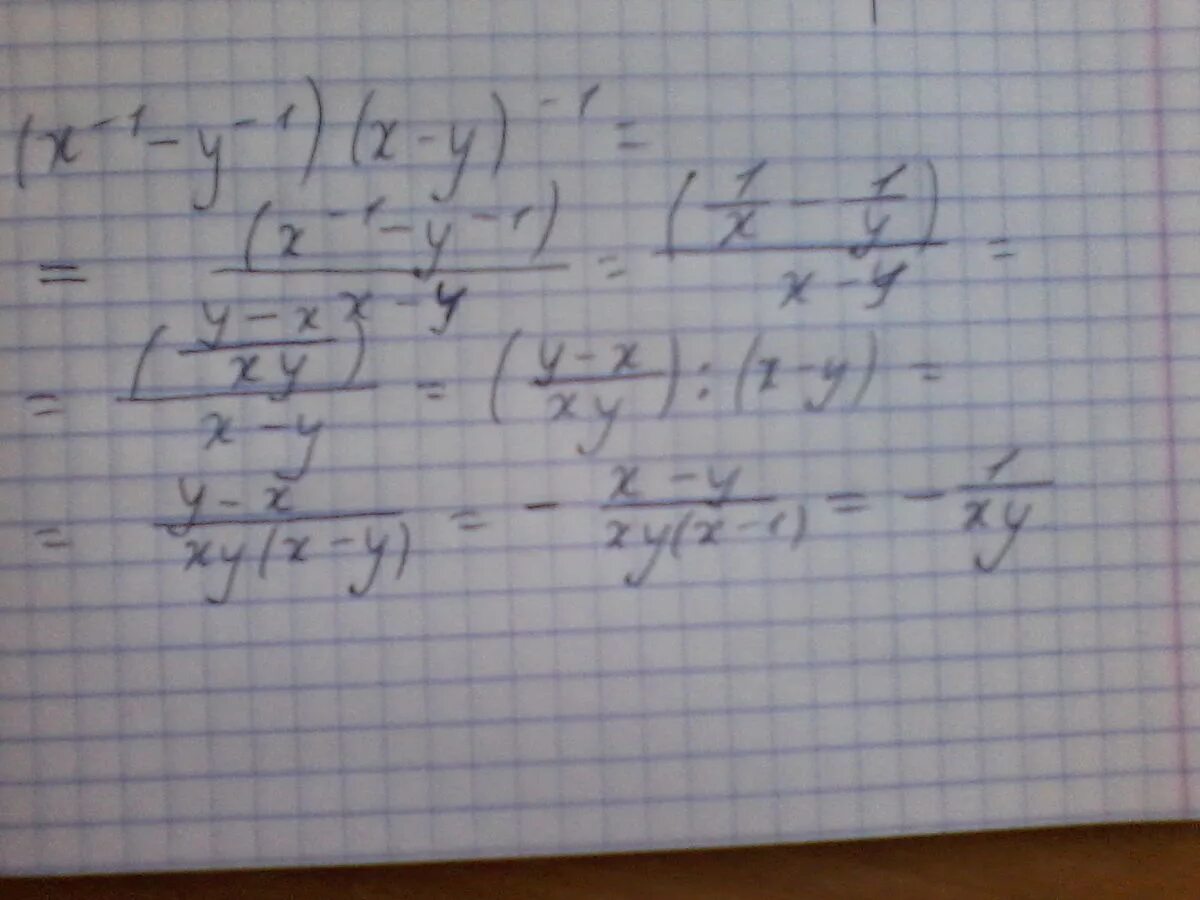 (x⁻¹ - y⁻¹)(x - y)⁻¹ =
= (x⁻¹ - y⁻¹)/(x - y) = (1/x - 1/y)/(x - y) =
= ((y - x)/(xy))/(x - y) = ((y - x)/(xy)) : (x - y) =
= (y - x)/(xy(x - y)) = - (x - y)/(xy(x - 1)) = - 1/(xy)